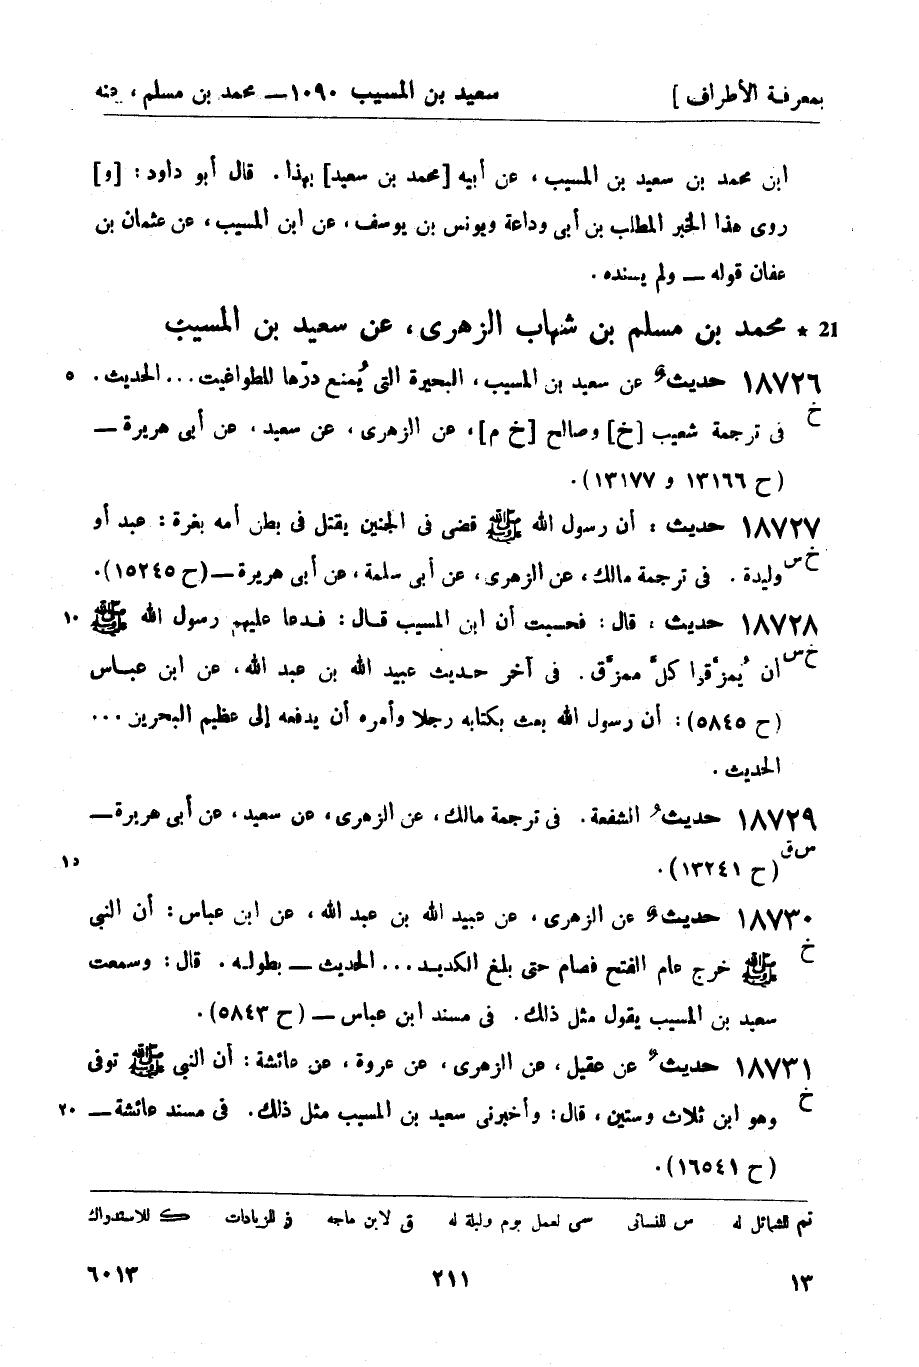 بمعرفة الأطراف ] سعيد بن المسيب ١٠٩٠ــ محمد بن مسلم ، عنه
ابن محمد بن سعيد بن المسيب ، عن أبيه [محمد بن سعيد] بهذا . قال أبو داود : [و]
روى هذا الخبر المطلب بن أبى وداعة ويونس بن يوسف ، عن ابن المسيب ، عن عثمان بن
عفان قوله ــ ولم يسنده .
21 * محمد بن مسلم بن شهاب الزهرى ، عن سعيد بن المسيب
١٨٧٢٦ حديثٌ عن سعيد بن المسيب ، البحيرة التى يُمنع درّها للطواغيت ... الحديث . ٥
خ فى ترجمة شعيب [خ] وصالح [خ م] ، عن الزهرى ، عن سعيد ، عن أبى هريرة ــ
(ح ١٣١٦٦ و ١٣١٧٧) .
١٨٧٢٧ حديث : أن رسول الله ﷺ قضى فى الجنين يقتل فى بطن أمه بغرة : عبد أو
خ س وليدة . فى ترجمة مالك ، عن الزهرى ، عن أبى سلمة ، عن أبى هريرة ــ (ح ١٥٢٤٥) .
١٨٧٢٨ حديث ، قال : فحسبت أن ابن المسيب قال : فدعا عليهم رسول الله ﷺ ١٠
خ س أن يُمزَّقوا كلَّ ممزَّق . فى آخر حديث عبيد الله بن عبد الله ، عن ابن عباس
(ح ٥٨٤٥) : أن رسول الله بعث بكتابه رجلا وأمره أن يدفعه إلى عظيم البحرين ...
الحديث .
١٨٧٢٩ حديثُ الشفعة . فى ترجمة مالك ، عن الزهرى ، عن سعيد ، عن أبى هريرة ــ
س ق (ح ١٣٢٤١) . ١٥
١٨٧٣٠ حديثٌ عن الزهرى ، عن عبيد الله بن عبد الله ، عن ابن عباس : أن النبى
خ ﷺ خرج عام الفتح فصام حتى بلغ الكديد ... الحديث ــ بطوله . قال : وسمعت
سعيد بن المسيب يقول مثل ذلك . فى مسند ابن عباس ــ (ح ٥٨٤٣) .
١٨٧٣١ حديثٌ عن عقيل ، عن الزهرى ، عن عروة ، عن عائشة : أن النبى ﷺ توفى
خ وهو ابن ثلاث وستين ، قال : وأخبرنى سعيد بن المسيب مثل ذلك . فى مسند عائشة ــ ٢٠
(ح ١٦٥٤١) .
تم للشمائل له س للنسائى سى لعمل يوم وليلة له ق لابن ماجه ز للزيادات ك للاستدراك
١٣ ٢١١ ٦٠١٣